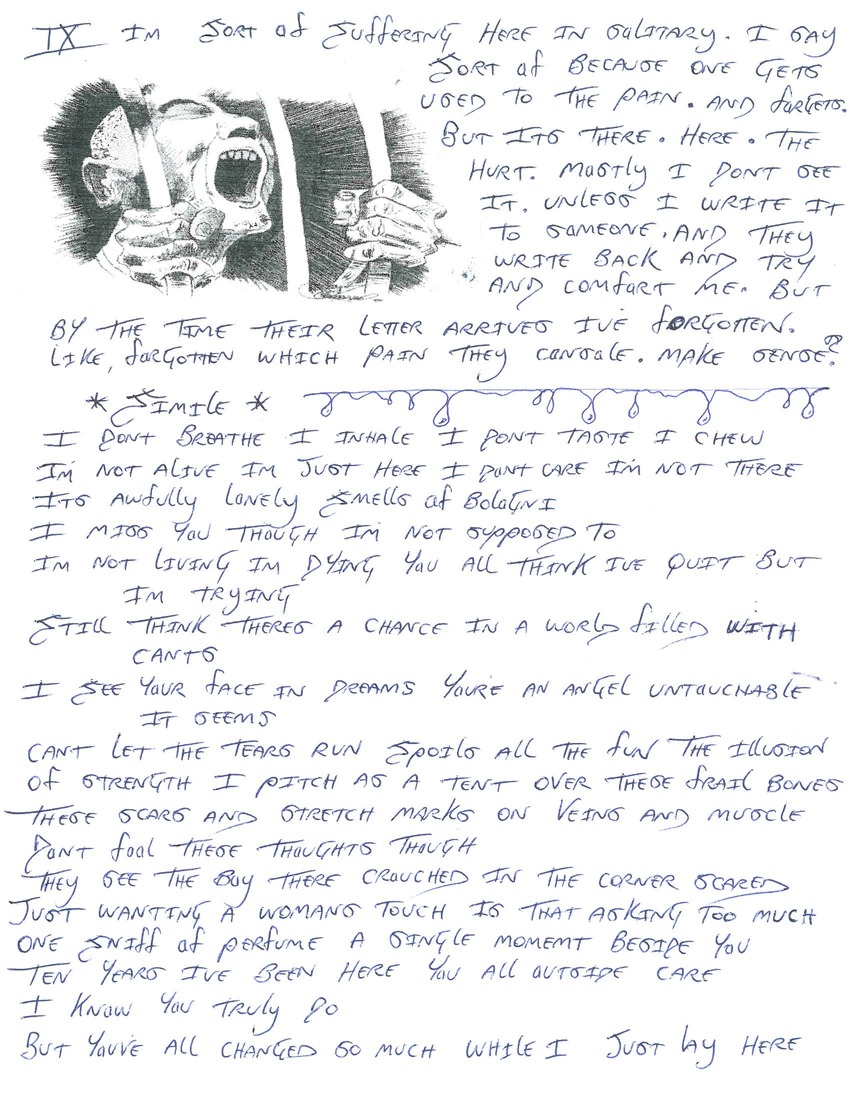 IX IM SORT OF SUFFERING HERE IN SOLITARY. I SAY
SORT OF BECAUSE ONE GETS
USED TO THE PAIN. AND FORGETS.
BUT ITS THERE. HERE. THE
HURT. MOSTLY I DONT SEE
IT. UNLESS I WRITE IT
TO SOMEONE. AND THEY
WRITE BACK AND TRY
AND COMFORT ME. BUT
BY THE TIME THEIR LETTER ARRIVES IVE FORGOTTEN.
LIKE, FORGOTTEN WHICH PAIN THEY CONSOLE. MAKE SENSE?
* SIMILE *
I DONT BREATHE I INHALE I DONT TASTE I CHEW
IM NOT ALIVE IM JUST HERE I DONT CARE IM NOT THERE
ITS AWFULLY LONELY SMELLS OF BOLOGNI
I MISS YOU THOUGH IM NOT SUPPOSED TO
IM NOT LIVING IM DYING YOU ALL THINK IVE QUIT BUT
IM TRYING
STILL THINK THERES A CHANCE IN A WORLD FILLED WITH
CANTS
I SEE YOUR FACE IN DREAMS YOURE AN ANGEL UNTOUCHABLE
IT SEEMS
CANT LET THE TEARS RUN SPOILS ALL THE FUN THE ILLUSION
OF STRENGTH I PITCH AS A TENT OVER THESE FRAIL BONES
THESE SCARS AND STRETCH MARKS ON VEINS AND MUSCLE
DONT FOOL THESE THOUGHTS THOUGH
THEY SEE THE BOY THERE CROUCHED IN THE CORNER SCARED
JUST WANTING A WOMANS TOUCH IS THAT ASKING TOO MUCH
ONE SNIFF OF PERFUME A SINGLE MOMEMT BESIDE YOU
TEN YEARS IVE BEEN HERE YOU ALL OUTSIDE CARE
I KNOW YOU TRULY DO
BUT YOUVE ALL CHANGED SO MUCH WHILE I JUST LAY HERE